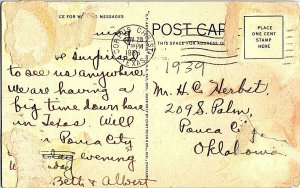 CE FOR W MESSAGES
POST CAR
THIS SPACE FOR ADDRESS O
PLACE
ONE CENT
STAMP
HERE
CORPUS CHRISTI
TEXAS
PM
1939
Surprised
to see us anywhere
We are having a
big time down here
in Texas. Will
Ponca City
evening
Beth & Albert
Mr. H.C. Herbst
209 S. Palm,
Ponca City
Oklahoma